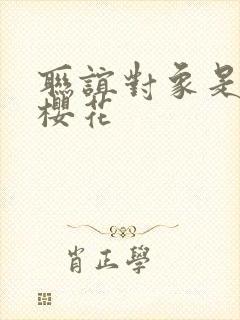 聯誼對象是
櫻花
肖正學